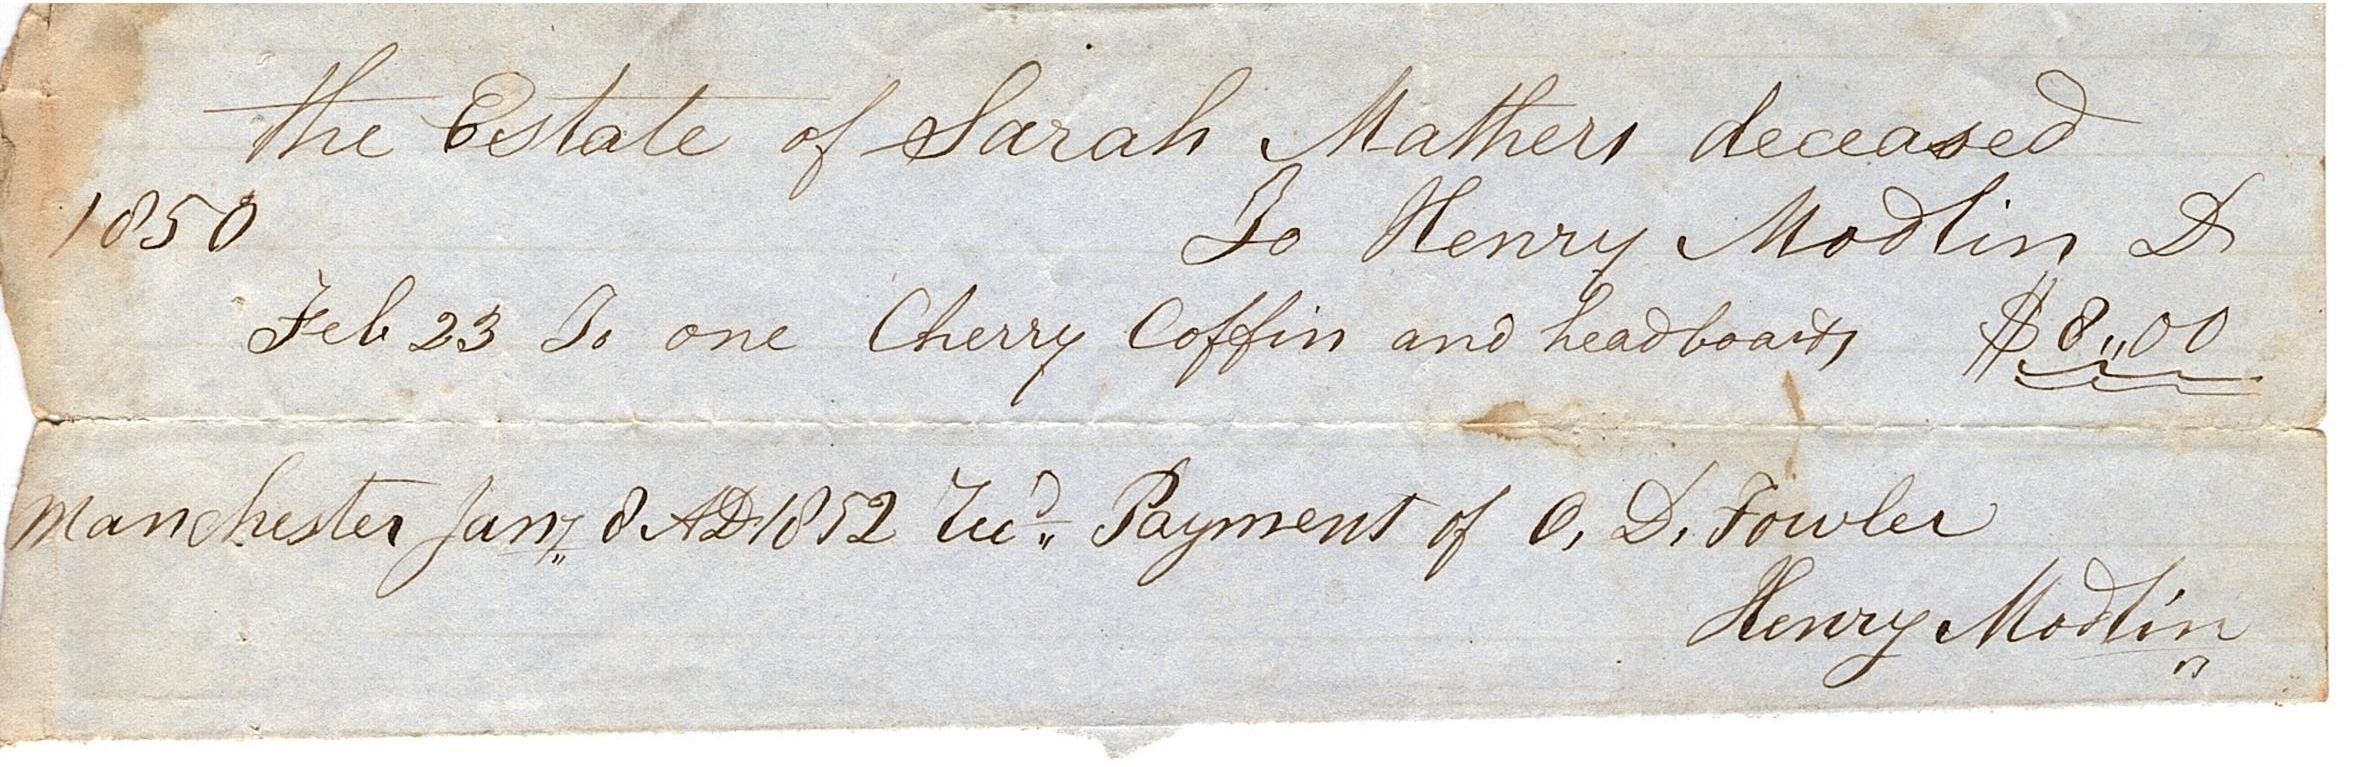 The Estate of Sarah Mathers deceased
1850 To Henry Modlin Dr
Feb 23 To one Cherry Coffin and headboards $8,,00
Manchester Jany 8 AD 1852 Recd Payment of O. D. Fowler
Henry Modlin